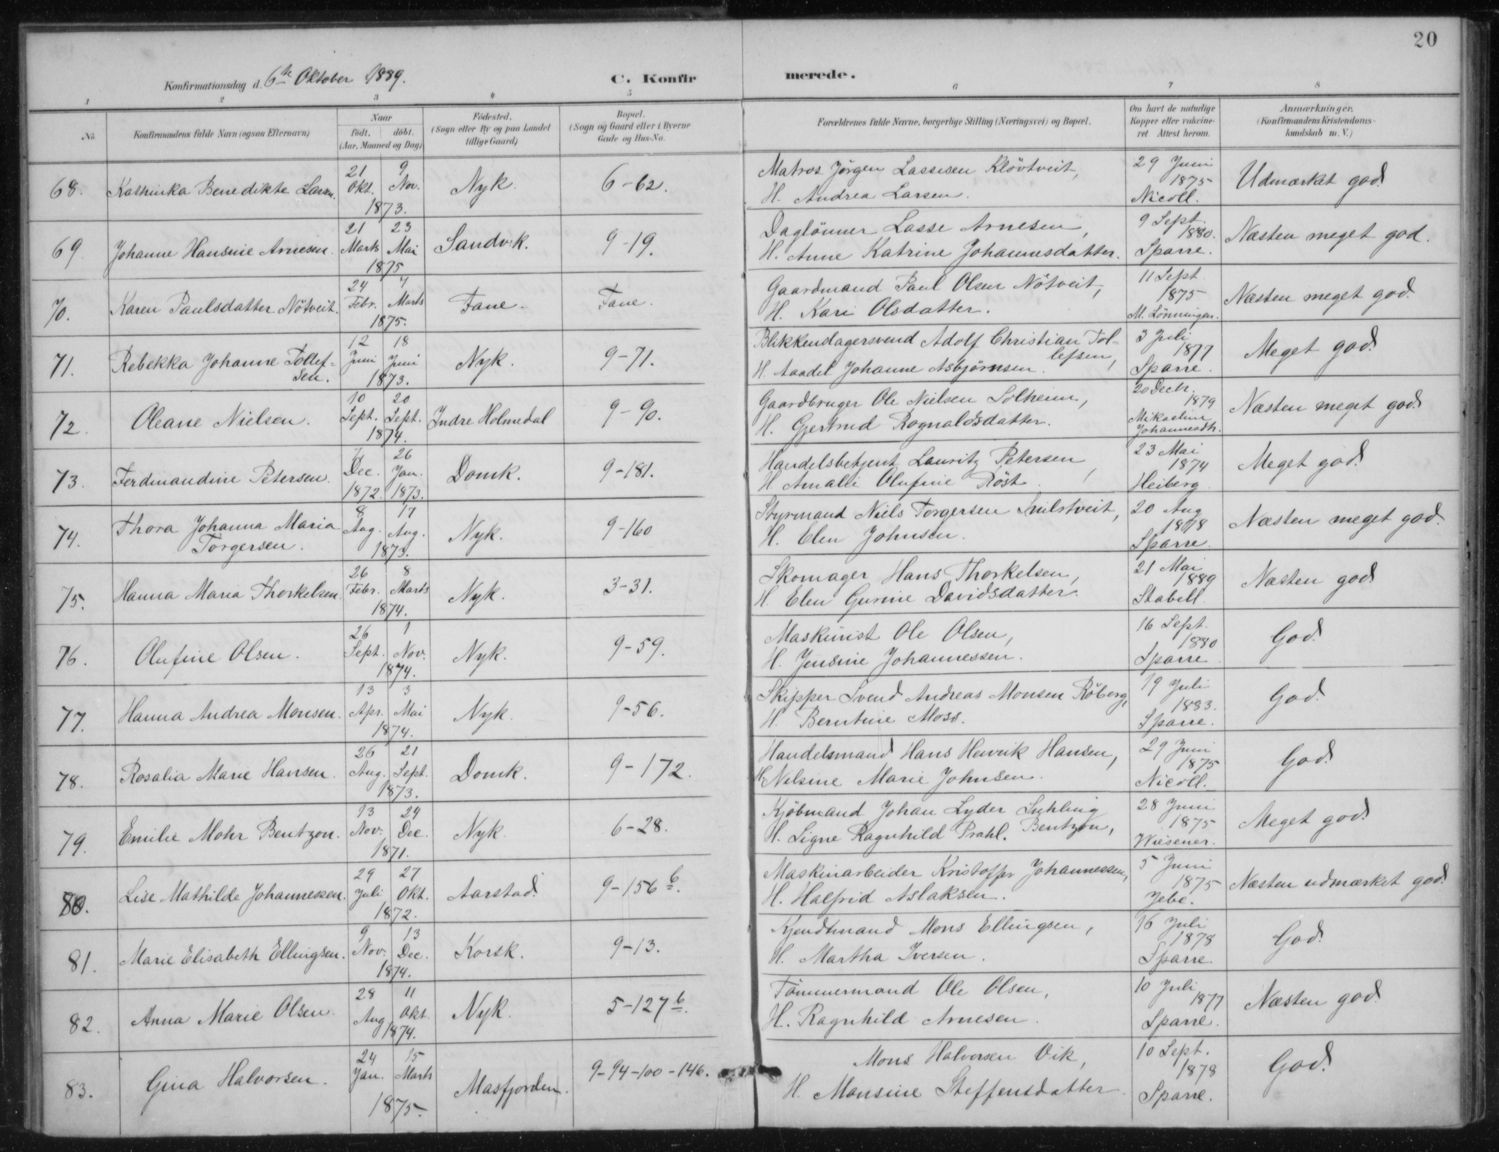 20
Konfirmationsdag d. 6te Oktober 1889.
C. Konfirmerede.
1 2 3 4 5 6 7 8
No.
Konfirmandens fulde Navn (ogsaa Efternavn)
Naar
født. døbt.
(Aar, Maaned og Dag)
Fødested.
(Sogn eller By og paa Landet
tillige Gaard)
Bopæl.
(Sogn og Gaard eller i Byerne
Gade og Hus-No.
Forældrenes fulde Navne, borgerlige Stilling (Næringsvei) og Bopæl.
Om havt de naturlige
Kopper eller vakcineret
Attest herom.
Anmærkninger.
(Konfirmandens Kristendomskundskab
m. V.)
68. Kathinka Benedikte Larsen. 21 Okt. 9 Nov. 1873. Nyk. 6-62. Matros Jørgen Lassesen Kløvtveit, 29 Juni 1875 Udmærket god.
H. Andrea Larsen. Nicoll.
69. Johanne Hansine Arnesen. 21 Marts 23 Mai 1875 Sandvk. 9-19. Daglønner Lasse Arnesen, 9 Sept. 1880. Næsten meget god.
H. Anne Katrine Johannesdatter. Sparre.
70. Karen Paulsdatter Nøtveit. 24 Febr. 4 Marts 1875. Fane. Fane. Gaardmand Paul Olsen Nøtveit, 11 Sept. 1875 Næsten meget god.
H. Kari Olsdatter. M. Lønningen.
71. Rebekka Johanne Tollefsen. 12 Juni 18 Juni 1873. Nyk. 9-71. Blikkenslagersvend Adolf Christian Tollefsen, 3 Juli 1877 Meget god.
H. Aadel Johanne Asbjørnsen. Sparre.
72. Oleane Nielsen. 10 Sept. 20 Sept. 1874. Indre Holmedal 9-90. Gaardbruger Ole Nielsen Solheim, 20 Decbr. 1879 Næsten meget god
H. Gjertrud Rognaldsdatter. Mikaeline Johannesdt.
73. Ferdinandine Petersen. Dec. 1872. 26 Jan. 1873. Domk. 9-181. Handelsbetjent Lauritz Petersen, 23 Mai 1874 Meget god.
H. Amalie Olufine Røst. Heiberg
74. Thora Johanna Maria Torgersen. 8 Aug. 17 Aug. 1873. Nyk. 9-160 Styrmand Niels Torgersen 20 Aug 1878 Næsten meget god.
H. Elen Johnsen. Sparre.
75. Hanna Maria Thorkelsen. 26 Febr. 8 Marts 1874. Nyk. 3-31. Skomager Hans Thorkelsen, 21 Mai 1889 Næsten god
H. Elen Gurine Davidsdatter. Stabell.
76. Olufine Olsen. 26 Sept. 1 Nov. 1874. Nyk. 9-59. Maskinist Ole Olsen, 16 Sept. 1880 God.
H. Jensine Johannessen. Sparre
77. Hanna Andrea Monsen. 13 Apr. 3 Mai 1874. Nyk. 9-56. Skipper Svend Andreas Monsen Røberg, 19 Juli 1883. God.
H. Berntine Moss. Sparre.
78. Rosalia Marie Hansen. 26 Aug. 21 Sept. 1873. Domk. 9-172. Handelsmand Hans Henrik Hansen, 29 Juni 1875 God.
H. Nilsine Marie Johnsen. Nicoll.
79. Emilie Mohr Bentzon. 13 Nov. 29 Dec. 1871. Nyk. 6-28. Kjøbmand Johan Lyder Bentzon, 28 Juni 1875 Meget god.
H. Signe Ragnhild Prahl. Wiesener.
80. Lise Mathilde Johannessen. 29 Juli 27 Okt. 1872. Aarstad. 9-156 b. Maskinarbeider Kristoffer Johannessen, 5 Juni 1875 Næsten udmærket god.
H. Halfrid Aslaksen. Jebe.
81. Marie Elisabeth Ellingsen. 9 Nov. 13 Dec. 1874. Korsk. 9-13. Kjendtmand Mons Ellingsen, 16 Juli 1878 God.
H. Martha Iversen. Sparre.
82. Anna Marie Olsen. 28 Aug 11 Okt. 1874. Nyk. 5-127 b. Tømmermand Ole Olsen, 10 Juli 1877 Næsten god.
H. Ragnhild Arnesen. Sparre.
83. Gina Halvorsen. 24 Jan. 15 Marts 1875. Masfjorden. 9-94-100-146. Mons Halvorsen Vik, 10 Sept. 1878 God.
H. Monsine Steffensdatter. Sparre.